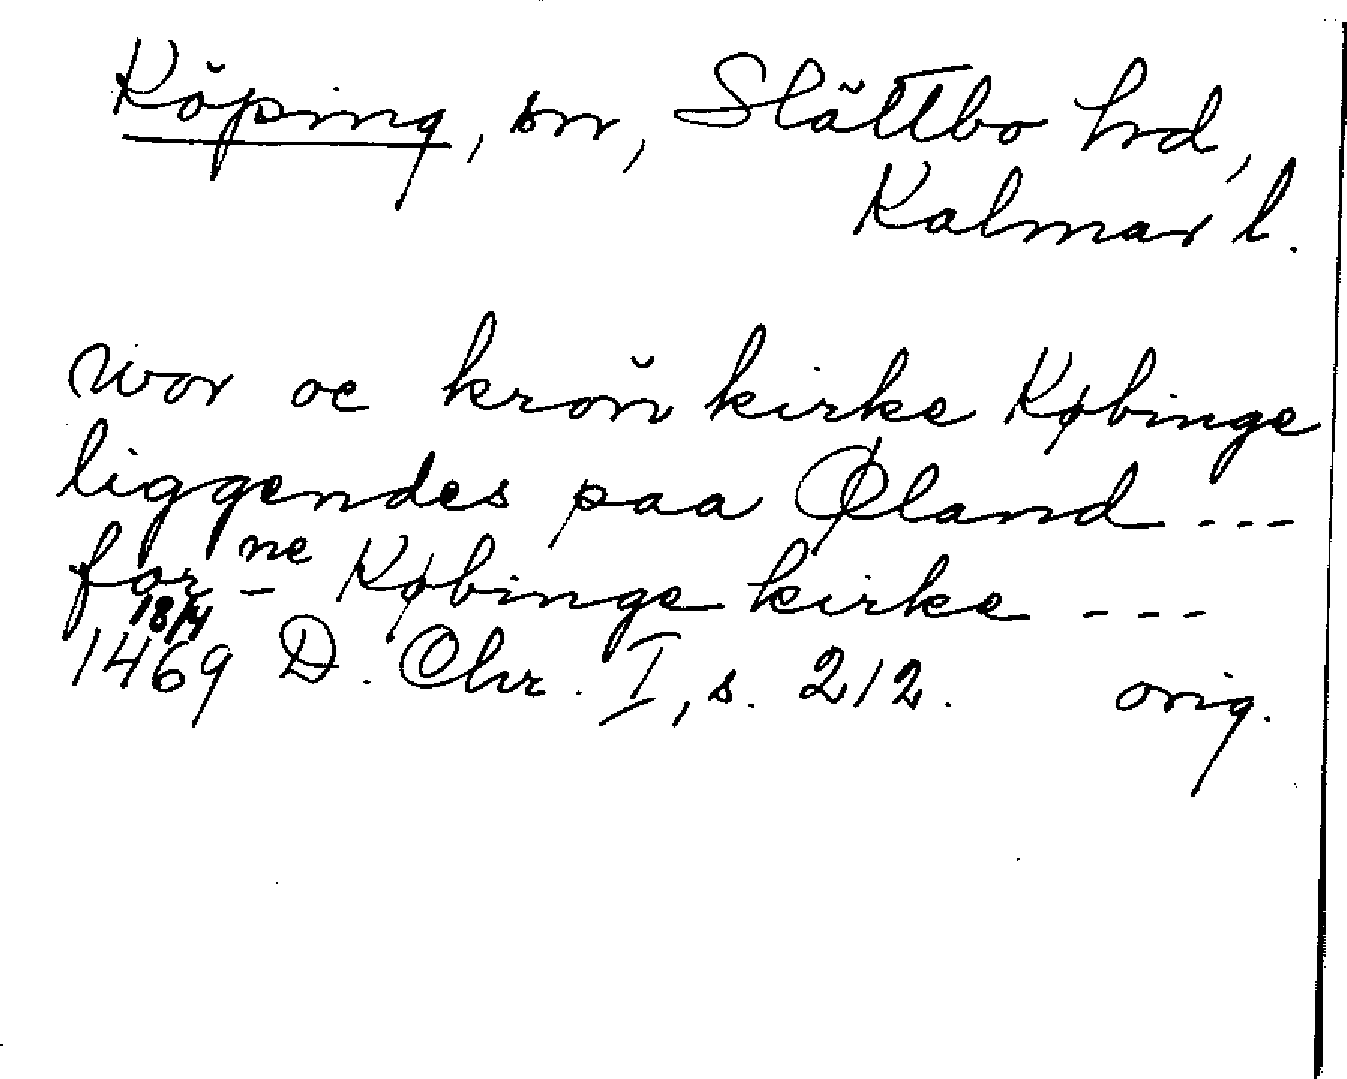 Köping, sn, Slättbo hd,
Kalmar l.
wor oc kron kirke Købinge
liggendes paa Øland ---
for ne – Købinge kirke ---
18/4
1469 D. Chr. I, s. 212. orig.